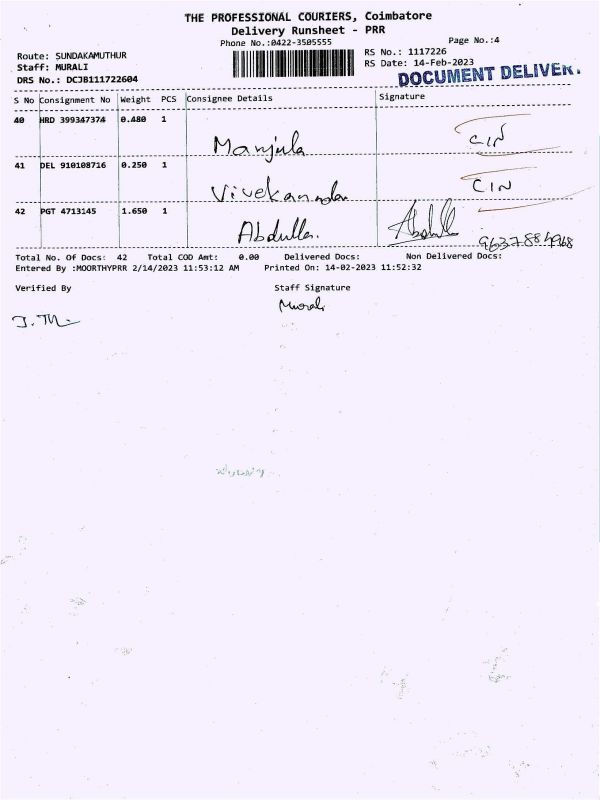 THE PROFESSIONAL COURIERS, Coimbatore
Delivery Runsheet - PRR
Phone No.:0422-3505555
Page No.:4
Route: SUNDAKAMUTHUR
RS No.: 1117226
Staff: MURALI
RS Date: 14-Feb-2023
DRS No.: DCJB111722604
DOCUMENT DELIVER
S No Consignment No Weight PCS Consignee Details Signature
40 HRD 399347374 0.480 1 Manjula CIN
41 DEL 910108716 0.250 1 CIN
42 PGT 4713145 1.650 1 Abdulla. Abdull
Total No. Of Docs: 42 Total COD Amt: 0.00 Delivered Docs: Non Delivered Docs:
Entered By :MOORTHYPRR 2/14/2023 11:53:12 AM Printed On: 14-02-2023 11:52:32
Verified By Staff Signature
Murali